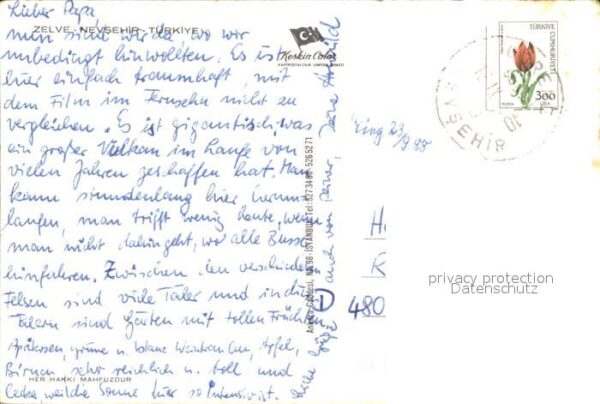 Lieber Papa
ZELVE, NEVŞEHİR - TÜRKİYE
nun sind wir da, wo wir
unbedingt hinwollten. Es ist
hier einfach traumhaft, mit
dem Film im Fernsehn nicht zu
vergleichen. Es ist gigantisch, was
ein großer Vulkan im Laufe von
vielen Jahren geschaffen hat. Man
kann stundenlang hier herum-
laufen, man trifft wenig Leute, wenn
man nicht dahingeht, wo alle Busse
hinfahren. Zwischen den verschiede
Felsen sind viele Täler und in die
Tälern sind Gärten mit tollen Früchten
Aprikosen, grüne u. blaue Weintrauben, Äpfel,
Birnen sehr reichlich u. toll und
HER HAKKI MAHFUZDUR
welche Sonne hier so intensiv ist.
viele Grüße auch von Rainer, Deine
Keskin Color
KARTPOSTALCILIK LIMITED ŞİRKETİ
Ankara Caddesi, No. 98 - İSTANBUL Tel: 5273446 - 5265271
TÜRKİYE
CUMHURİYETİ
300
LİRA
POSTA
NEVŞEHİR
23/9 88
D
480
privacy protection
Datenschutz